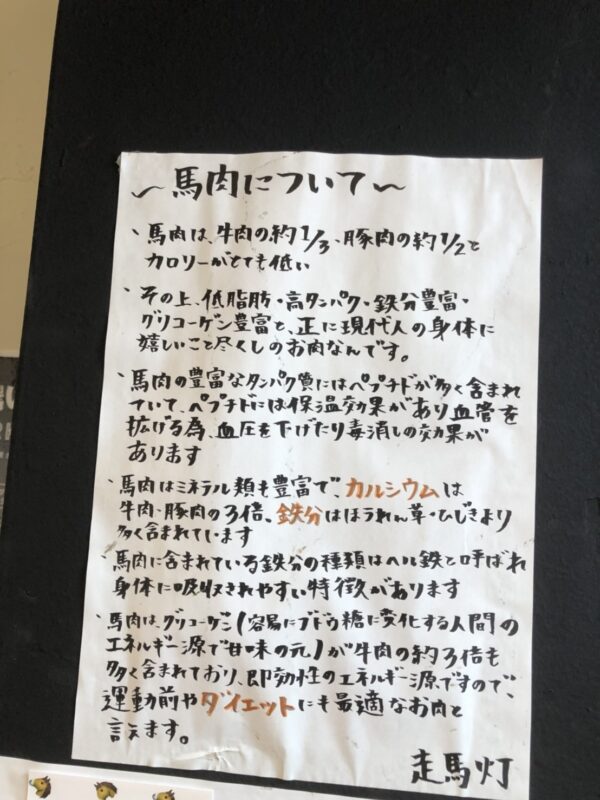 ～馬肉について～
、馬肉は、牛肉の約1/3、豚肉の約1/2と
カロリーがとても低い
、その上、低脂肪・高タンパク・鉄分豊富・
グリコーゲン豊富と、正に現代人の身体に
嬉しいこと尽くしのお肉なんです。
、馬肉の豊富なタンパク質にはペプチドが多く含まれ
ていて、ペプチドには保温効果があり血管を
拡げる為、血圧を下げたり毒消しの効果が
あります
、馬肉はミネラル類も豊富で、カルシウムは
牛肉・豚肉の3倍、鉄分はほうれん草・ひじきより
多く含まれています
、馬肉に含まれている鉄分の種類はヘル鉄と呼ばれ
身体に吸収されやすい特徴があります
、馬肉は、グリコーゲン(容易にブドウ糖に変化する人間の
エネルギー源で甘味の元)が牛肉の約3倍も
多く含まれており、即効性のエネルギー源ですので、
運動前やダイエットにも最適なお肉と
言えます。
走馬灯